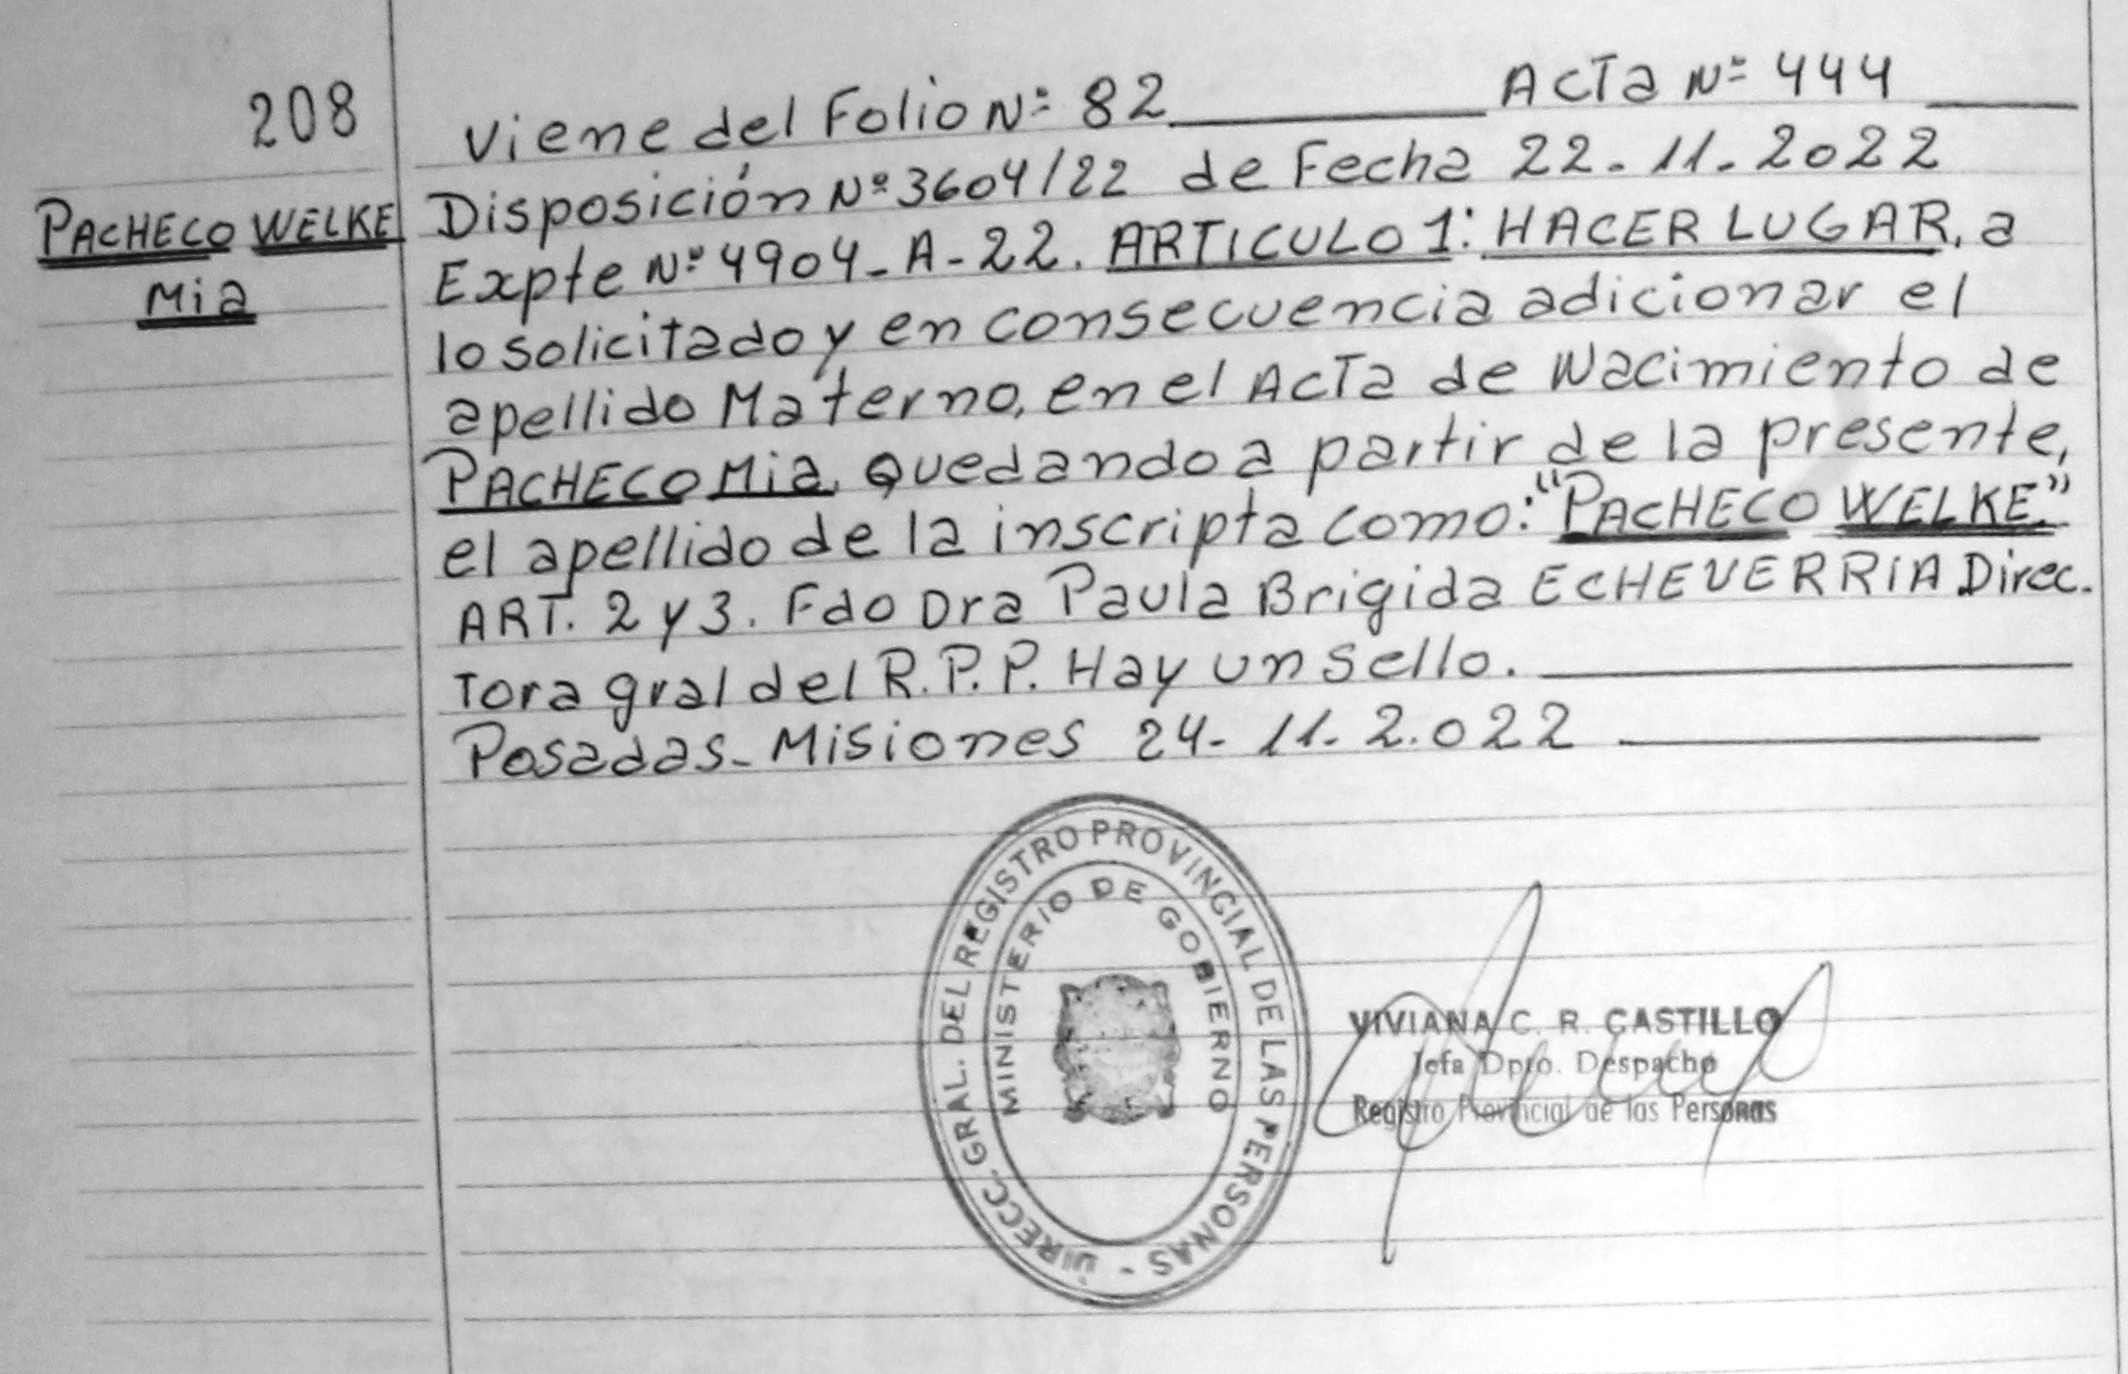 208
PACHECO WELKE
Mia
Viene del Folio Nº 82 Acta Nº 444
Disposición Nº 3604/22 de Fecha 22-11-2022
Expte Nº 4904-A-22. ARTICULO 1: HACER LUGAR, a
lo solicitado y en consecuencia adicionar el
apellido Materno, en el Acta de Nacimiento de
PACHECO Mia, Quedando a partir de la presente,
el apellido de la inscripta como: "PACHECO WELKE."
ART. 2 y 3. Fdo Dra Paula Brigida ECHEVERRIA Direc.
tora gral del R.P.P. Hay un sello.
Posadas-Misiones 24-11-2.022
DIRECC. GRAL. DEL REGISTRO PROVINCIAL DE LAS PERSONAS -
MINISTERIO DE GOBIERNO
VIVIANA C. R. CASTILLO
Jefa Dpto. Despacho
Registro Provincial de las Personas